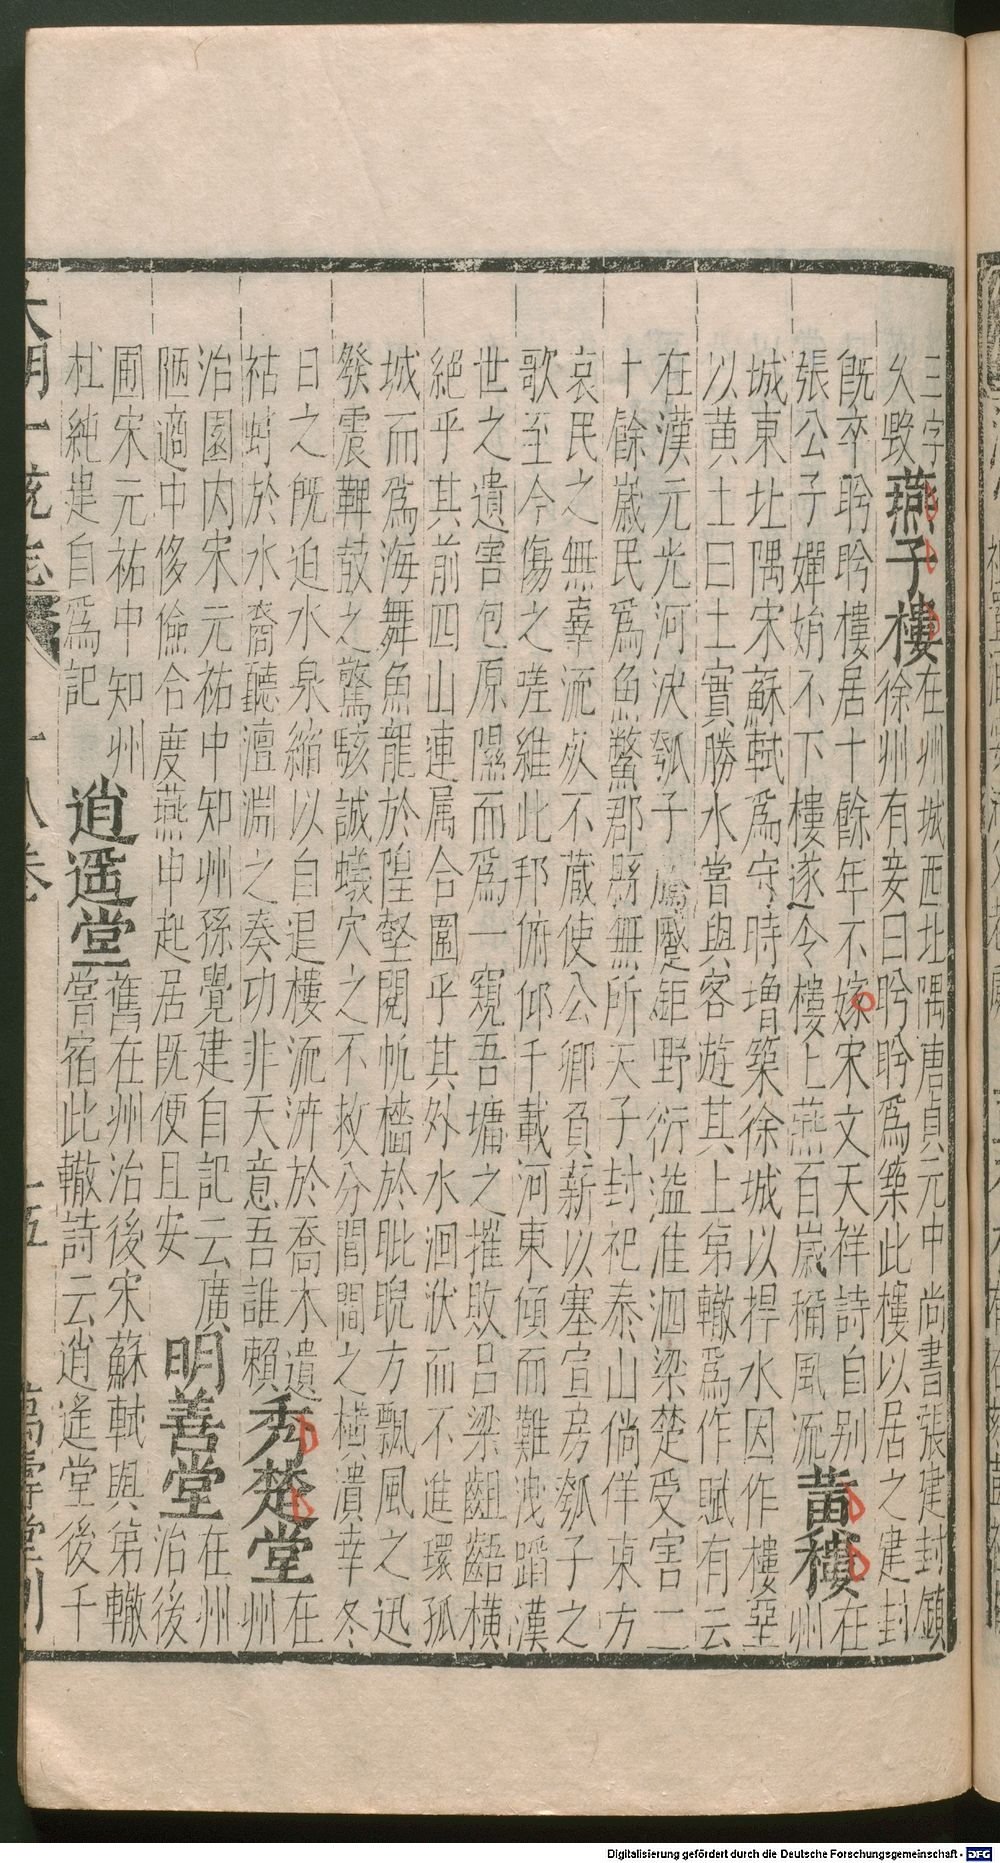 三字
久毀
燕子樓
在州城西北隅唐貞元中尚書張建封鎮
徐州有妾曰盻盻爲築此樓以居之建封
既卒盻盻樓居十餘年不嫁宋文天祥詩自別
張公子嬋娟不下樓遂令樓上燕百歲稱風流
黄樓
在
州
城東北隅宋蘇軾爲守時增築徐城以捍水因作樓堊
以黄土曰土實勝水嘗與客遊其上弟轍爲作賦有云
在漢元光河決瓠子騰蹙鉅野衍溢淮泗梁楚受害二
十餘歲民爲魚鱉郡縣無所天子封祀泰山徜徉東方
哀民之無辜流死不藏使公卿負薪以塞宣房瓠子之
歌至今傷之嗟維此邦俯仰千載河東傾而難洩蹈漢
世之遺害包原隰而爲一窺吾墉之摧敗呂梁齟齬橫
絕乎其前四山連属合圍乎其外水洄洑而不進環孤
城而爲海舞魚龍於隍壑閱帆檣於睥睨方飄風之迅
發震鞞鼓之驚駭誠蟻穴之不救分閭閻之橫潰幸冬
日之既迫水泉縮以自退樓流涬於喬木遺
祜蚌於水裔聽澶淵之奏功非天意吾誰賴
秀楚堂
在
州
治園内宋元祐中知州孫覺建自記云廣
陋適中侈儉合度燕申起居既便且安
明善堂
在州
治後
圃宋元祐中知州
杜純建自爲記
逍遥堂
舊在州治後宋蘇軾與弟轍
嘗宿此轍詩云逍遙堂後千
大明一統志
十八卷
十五
萬壽堂刊
Digitalisierung gefördert durch die Deutsche Forschungsgemeinschaft - DFG